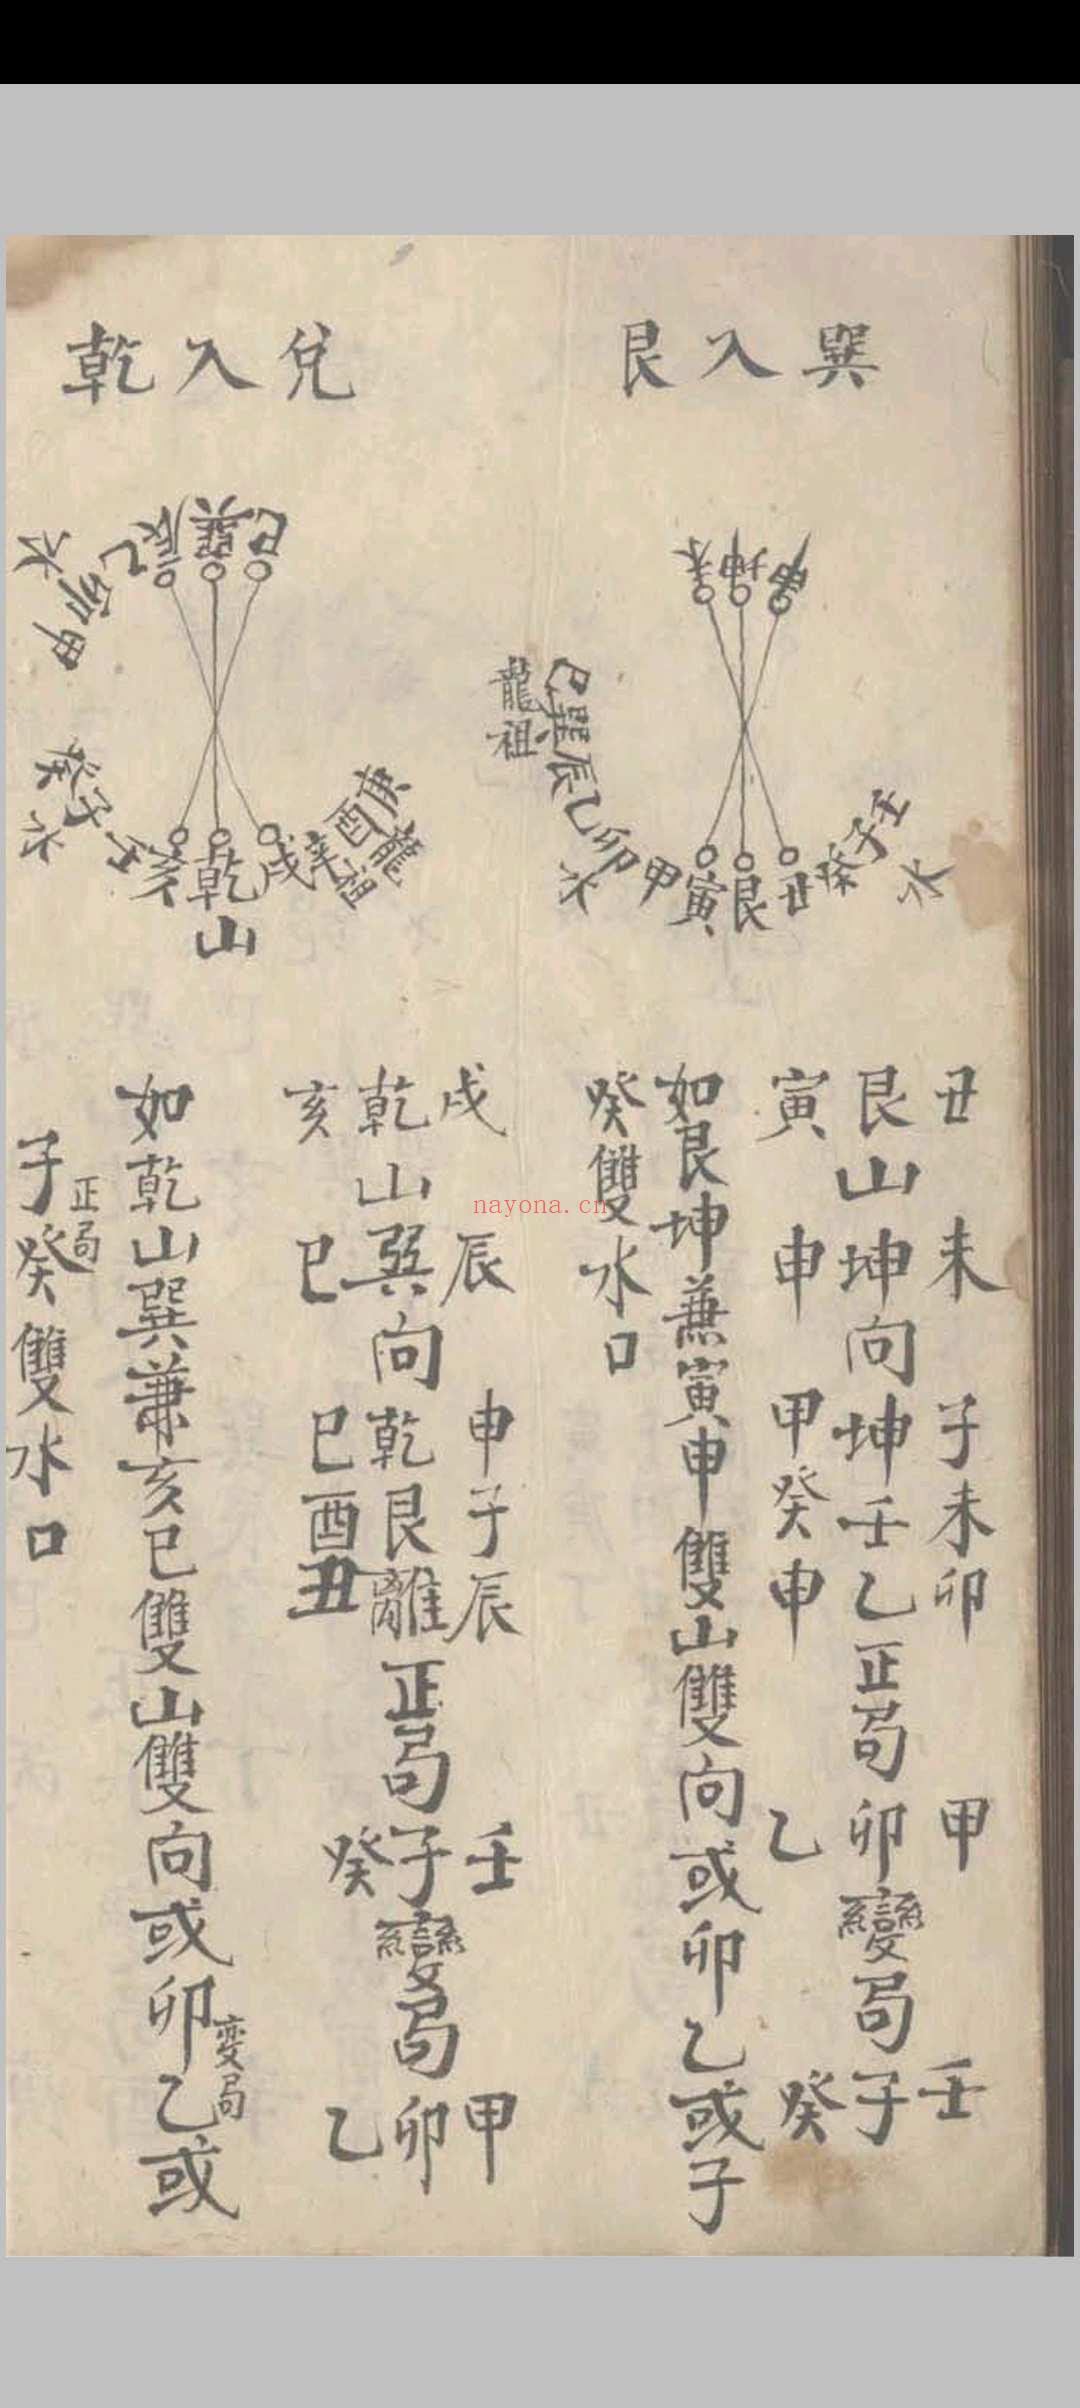 巽入艮
申坤未
壬子癸丑艮寅甲卯乙辰巽巳
水
水
祖龍
丑 未 子未卯 甲 壬
艮山坤向坤壬乙正局卯變局子
寅 申 甲癸申 乙 癸
如艮坤兼寅申雙山雙向或卯乙或子
癸雙水口
兌入乾
巳巽辰乙卯甲
水
庚酉辛戌乾亥壬子癸
祖龍
水
山
戌 辰 申子辰 壬 甲
乾山巽向乾艮離正局子變局卯
亥 巳 巳酉丑 癸 乙
如乾山巽兼亥巳雙山雙向或卯乙變局或
子癸正局雙水口
nayona.cn